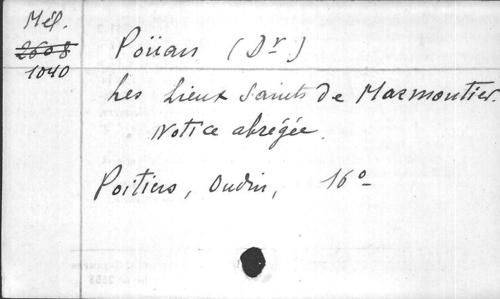 Mél.
2608
1040
Poüan (Dr.)
Les Lieux Saints de Marmoutier.
Notice abrégée.
Poitiers, Oudin, 16°